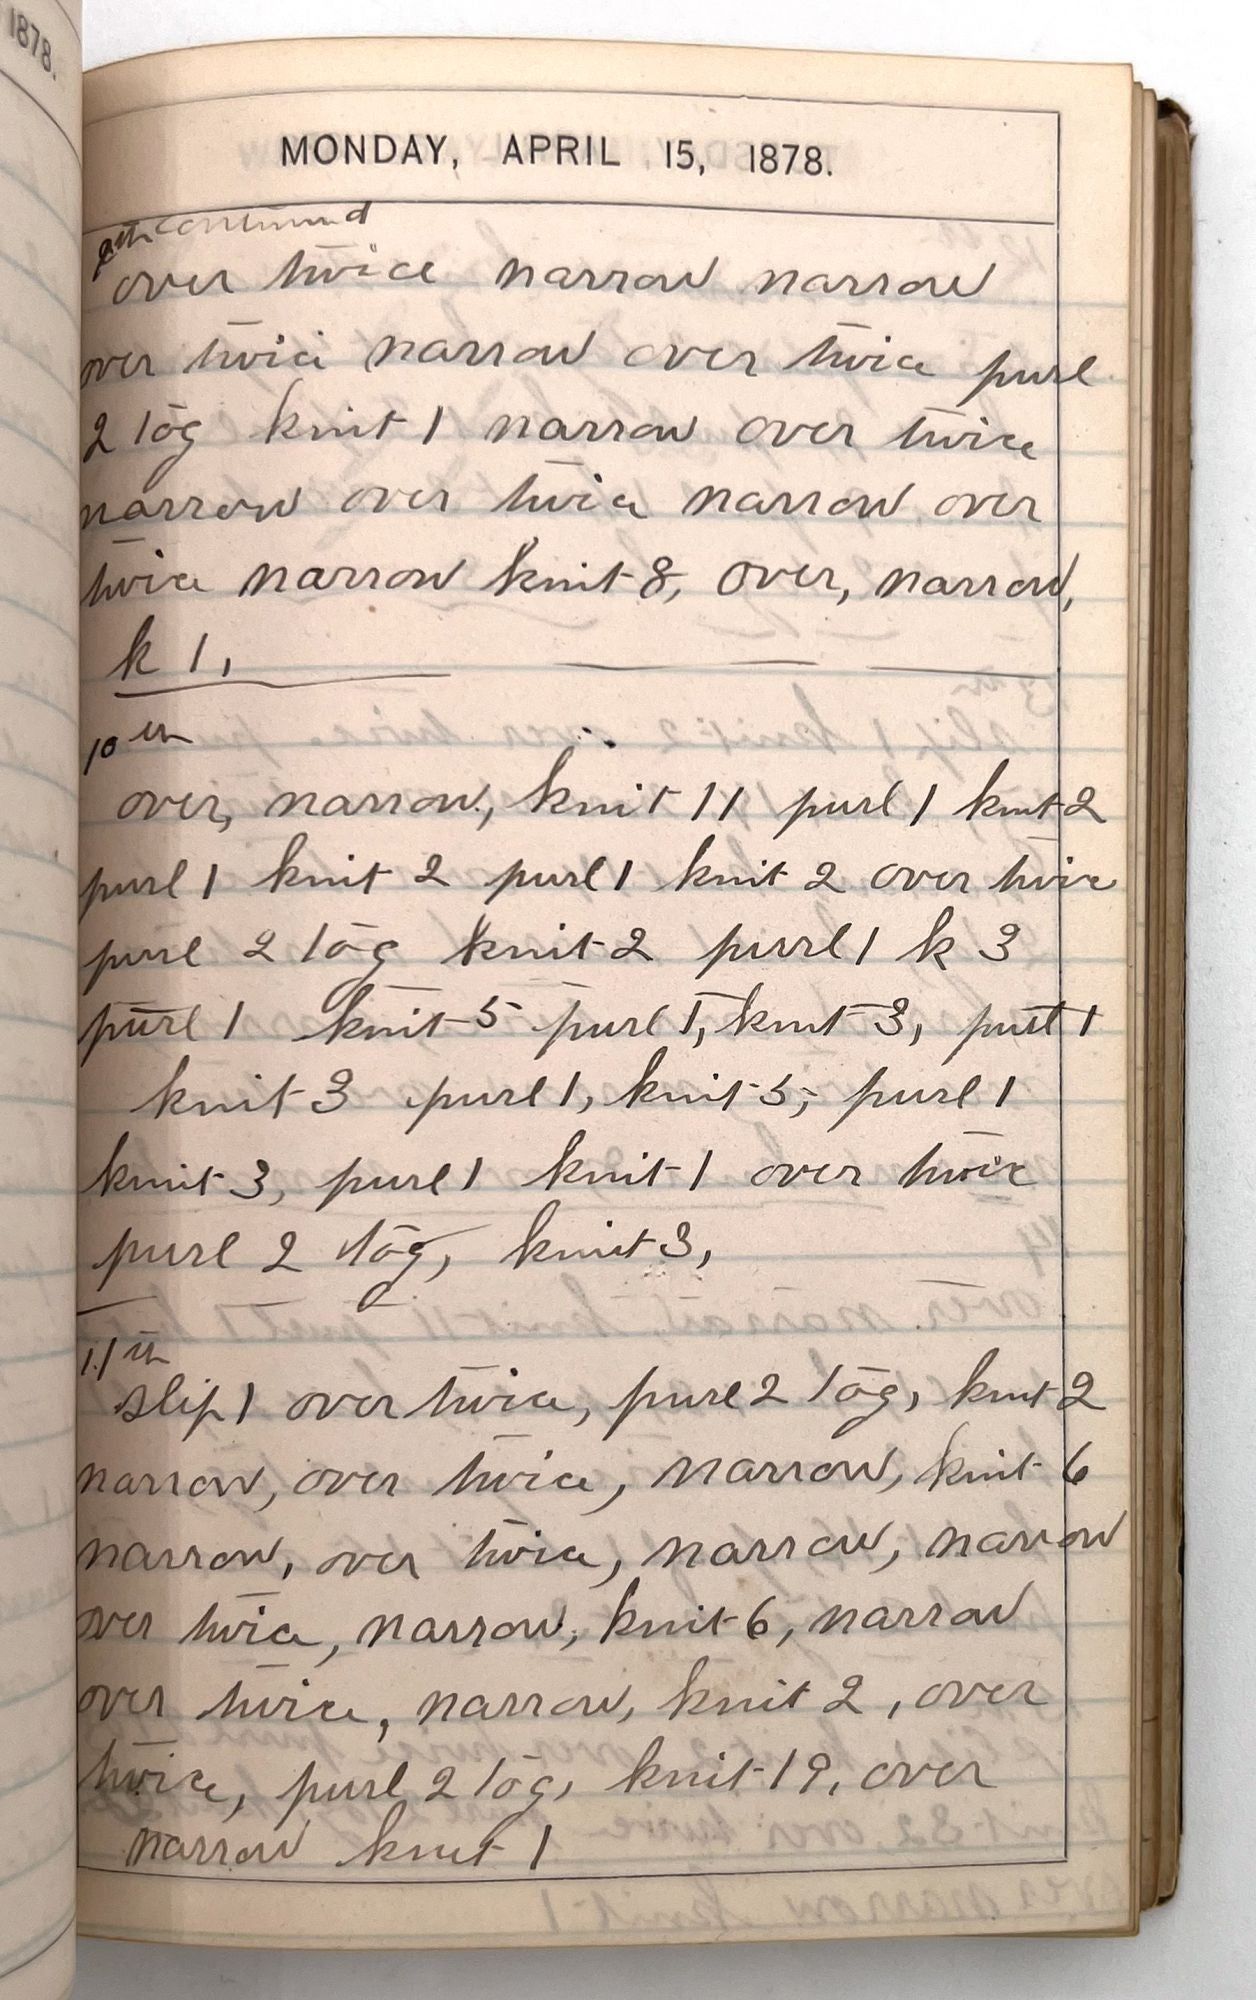 1878.
MONDAY, APRIL 15, 1878.
9th continued
over twice narrow narrow
over twice narrow over twice purl
2 tog knit 1 narrow over twice
narrow over twice narrow over
twice narrow knit 8, over, narrow,
k 1,
10th
over, narrow, knit 11 purl 1 knit 2
purl 1 knit 2 purl 1 knit 2 over twice
purl 2 tog knit 2 purl 1 k 3
purl 1 knit 5 purl 1, knit 3, purl 1
knit 3 purl 1, knit 5, purl 1
knit 3, purl 1 knit 1 over twice
purl 2 tog, knit 3,
11th
slip 1 over twice, purl 2 tog, knit 2
narrow, over twice, narrow, knit 6
narrow, over twice, narrow, narrow
over twice, narrow, knit 6, narrow
over twice, narrow, knit 2, over
twice, purl 2 tog, knit 19, over
narrow knit 1